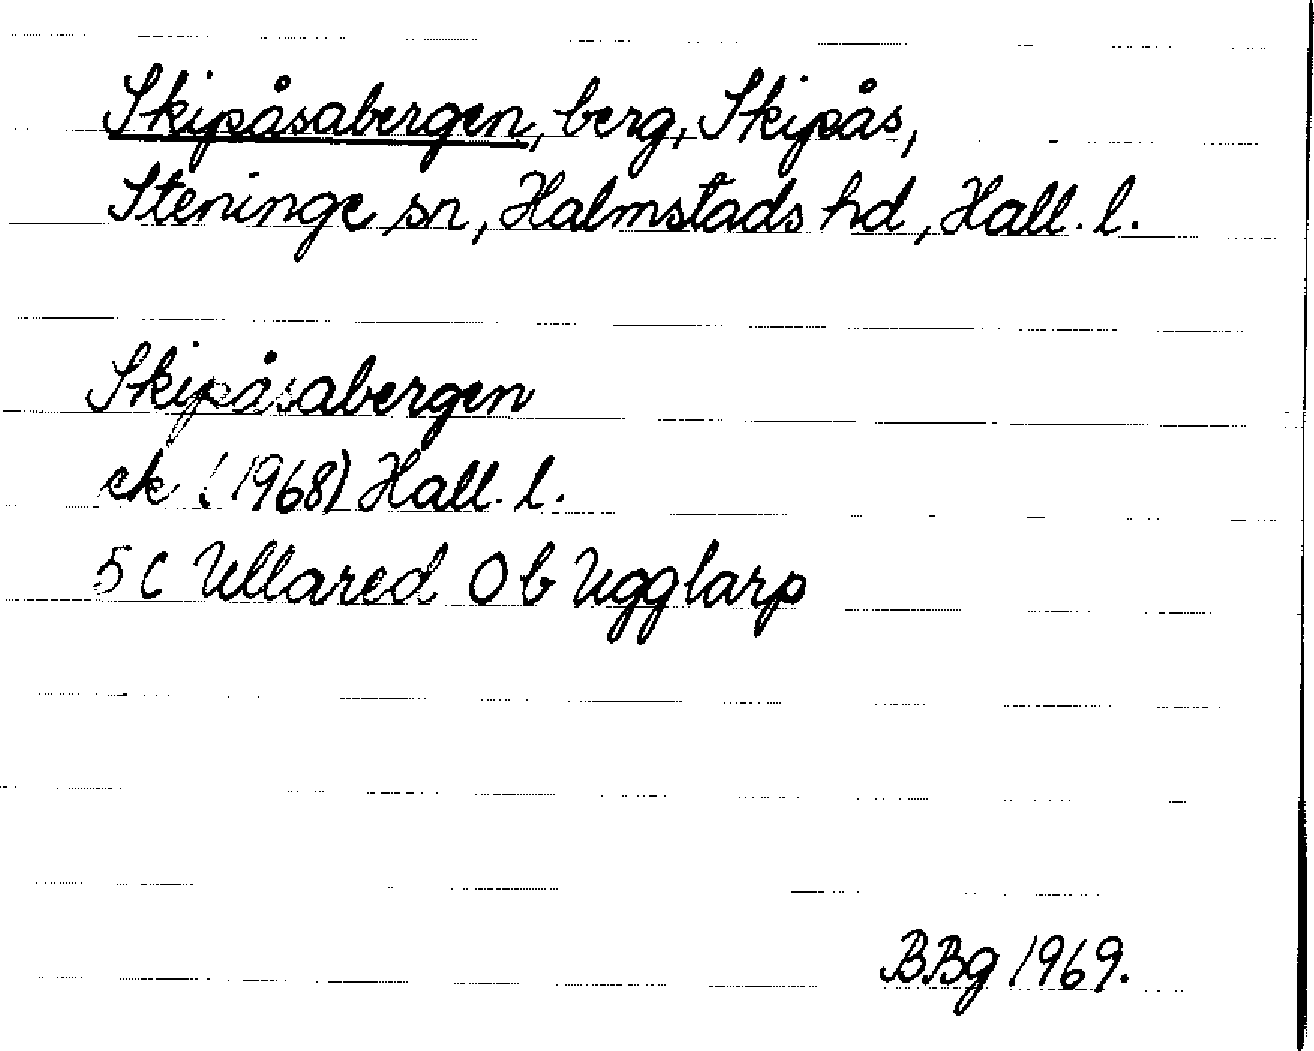 Skipåsabergen, berg, Skipås,
Steninge sn, Halmstads hd, Hall. l.
Skipåsabergen
ek (1968) Hall. l.
5 C Ullared 0 b Ugglarp
BBg 1969.